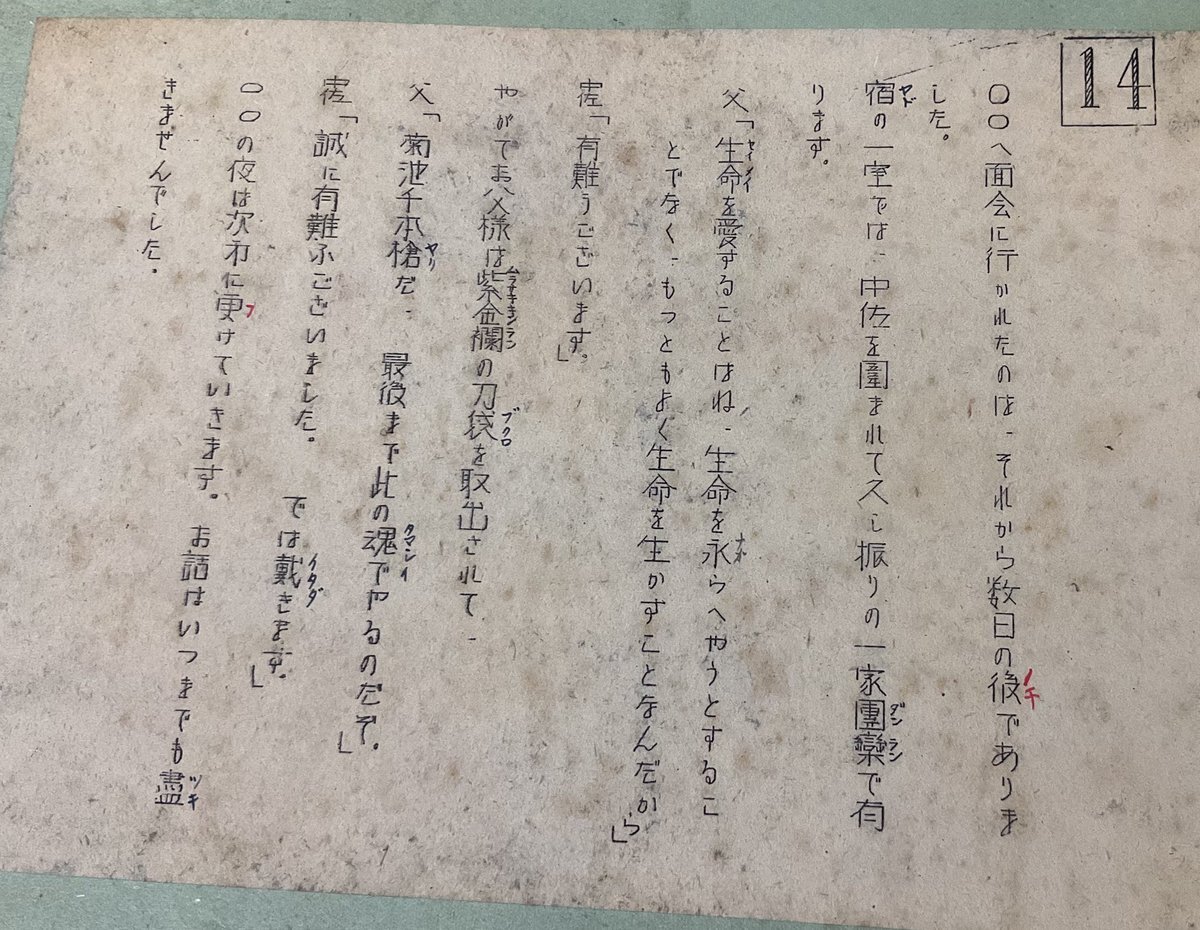 14
〇〇へ面会に行かれたのは、それから数日の後でありま
した。
宿の一室では、中佐を圍まれて久し振りの一家團欒で有
ります。
父「生命を愛することはね、生命を永らへやうとするこ
とでなく、もつともよく生命を生かすことなんだから」
佐「有難うございます。」
やがてお父様は紫金襴の刀袋を取出されて、
父「菊池千本槍だ、最後まで此の魂でやるのだぞ。」
佐「誠に有難ふございました。では戴きます。」
〇〇の夜は次第に更けていきます。お話はいつまでも盡
きませんでした。